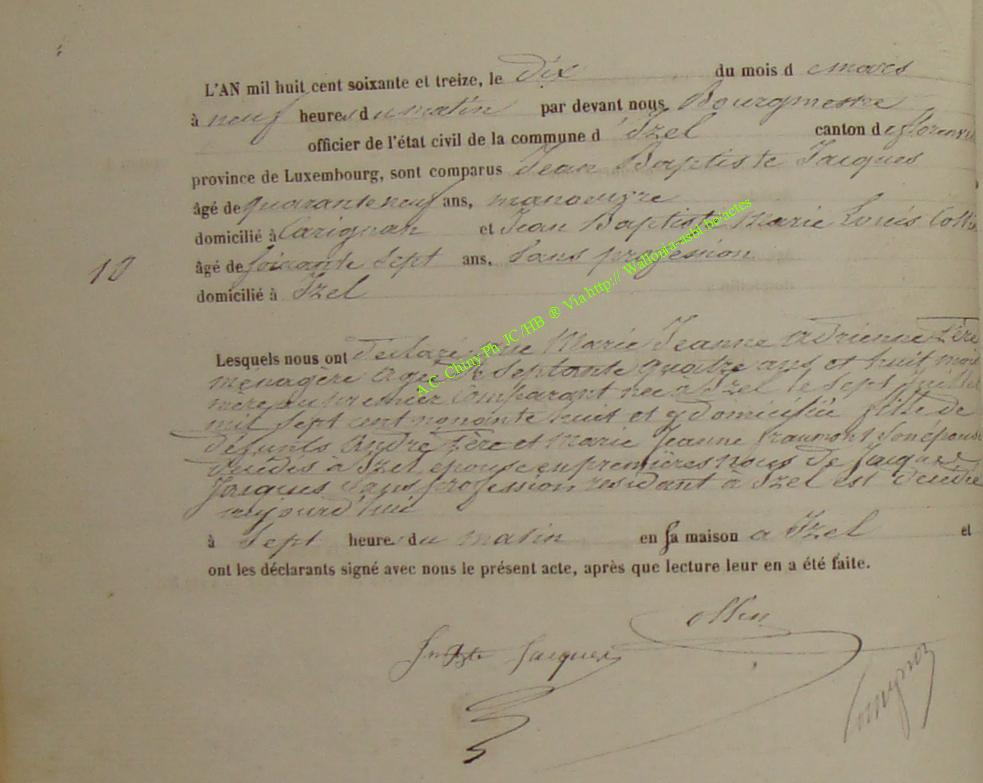 L'AN mil huit cent soixante et treize, le dix du mois d e mars
à neuf heures du matin par devant nous Bourgmestre
officier de l'état civil de la commune d'Izel canton de
province de Luxembourg, sont comparus Jean Baptiste Jacques
âgé de quarante neuf ans, manoeuvre
domicilié à Carignan et Jean Baptiste Marie Louis Collin
10
âgé de soixante sept ans, sans profession
domicilié à Izel
A C Chiny Ph JC/HB ® Via http:// Wallonia-asbl.be/actes
Lesquels nous ont déclaré que Marie Jeanne Adrienne
ménagère agée de septante quatre ans et huit mois
mère du premier comparant née à Izel le sept juillet
mil sept cent nonante huit et y domiciliée fille de
défunts André et Marie Jeanne son épouse
décédés à Izel épouse en premières noces de Jacques
Jacques sans profession résidant à Izel est décédée
aujourd'hui
à sept heures du matin en sa maison a Izel et
ont les déclarants signé avec nous le présent acte, après que lecture leur en a été faite.
Collin
Jn Bte Jacques